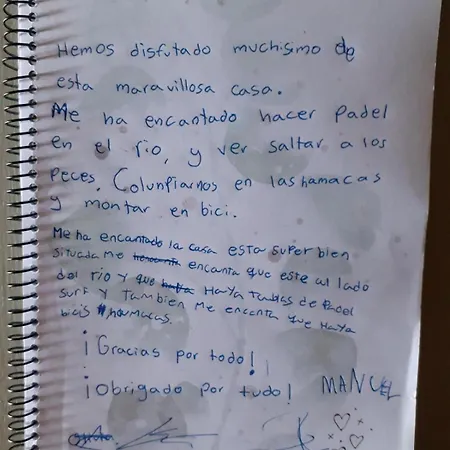 Hemos disfutado muchismo de
esta maravillosa casa.
Me ha encantado hacer Padel
en el rio, y ver saltar a los
Peces. Colunpiarnos en las hamacas
y montar en bici.
Me ha encantado la casa esta super bien
situada Me encanta que este al lado
del rio y que Haya Tablas de Padel
surf y Tambien Me encanta que Haya
bicis hamacas.
¡Gracias por todo!
¡Obrigado por tudo!
MANUEL